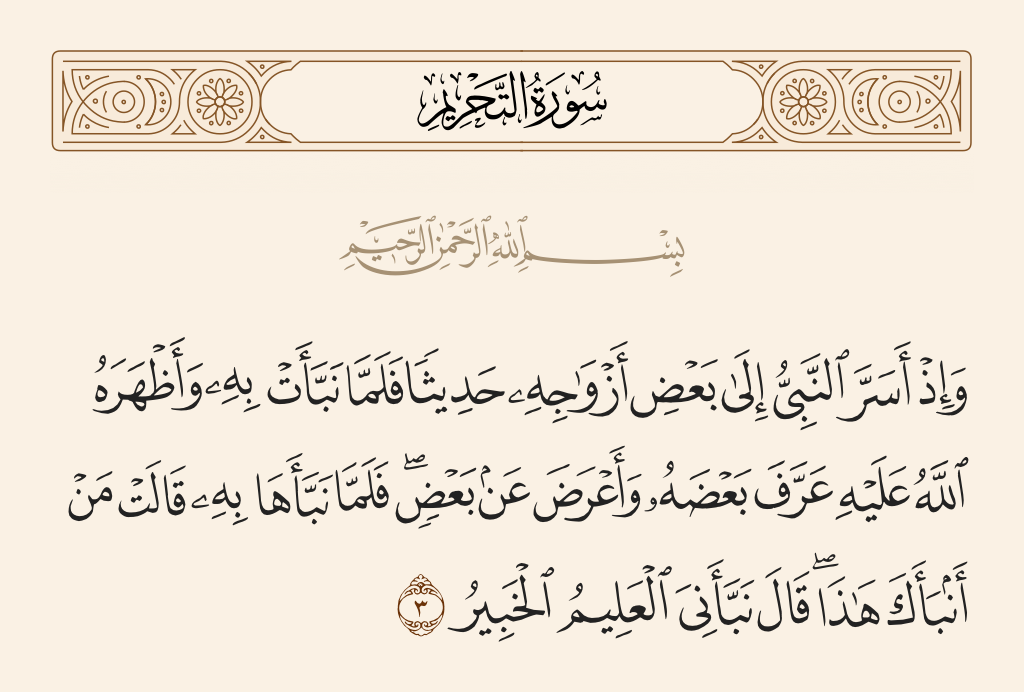 سُورَةُ التَّحْرِيمِ
بِسْمِ ٱللَّهِ ٱلرَّحْمَٰنِ ٱلرَّحِيمِ
وَإِذْ أَسَرَّ ٱلنَّبِىُّ إِلَىٰ بَعْضِ أَزْوَٰجِهِۦ حَدِيثًا فَلَمَّا نَبَّأَتْ بِهِۦ وَأَظْهَرَهُ
ٱللَّهُ عَلَيْهِ عَرَّفَ بَعْضَهُۥ وَأَعْرَضَ عَنۢ بَعْضٍ ۖ فَلَمَّا نَبَّأَهَا بِهِۦ قَالَتْ مَنْ
أَنۢبَأَكَ هَٰذَا ۖ قَالَ نَبَّأَنِىَ ٱلْعَلِيمُ ٱلْخَبِيرُ ٣